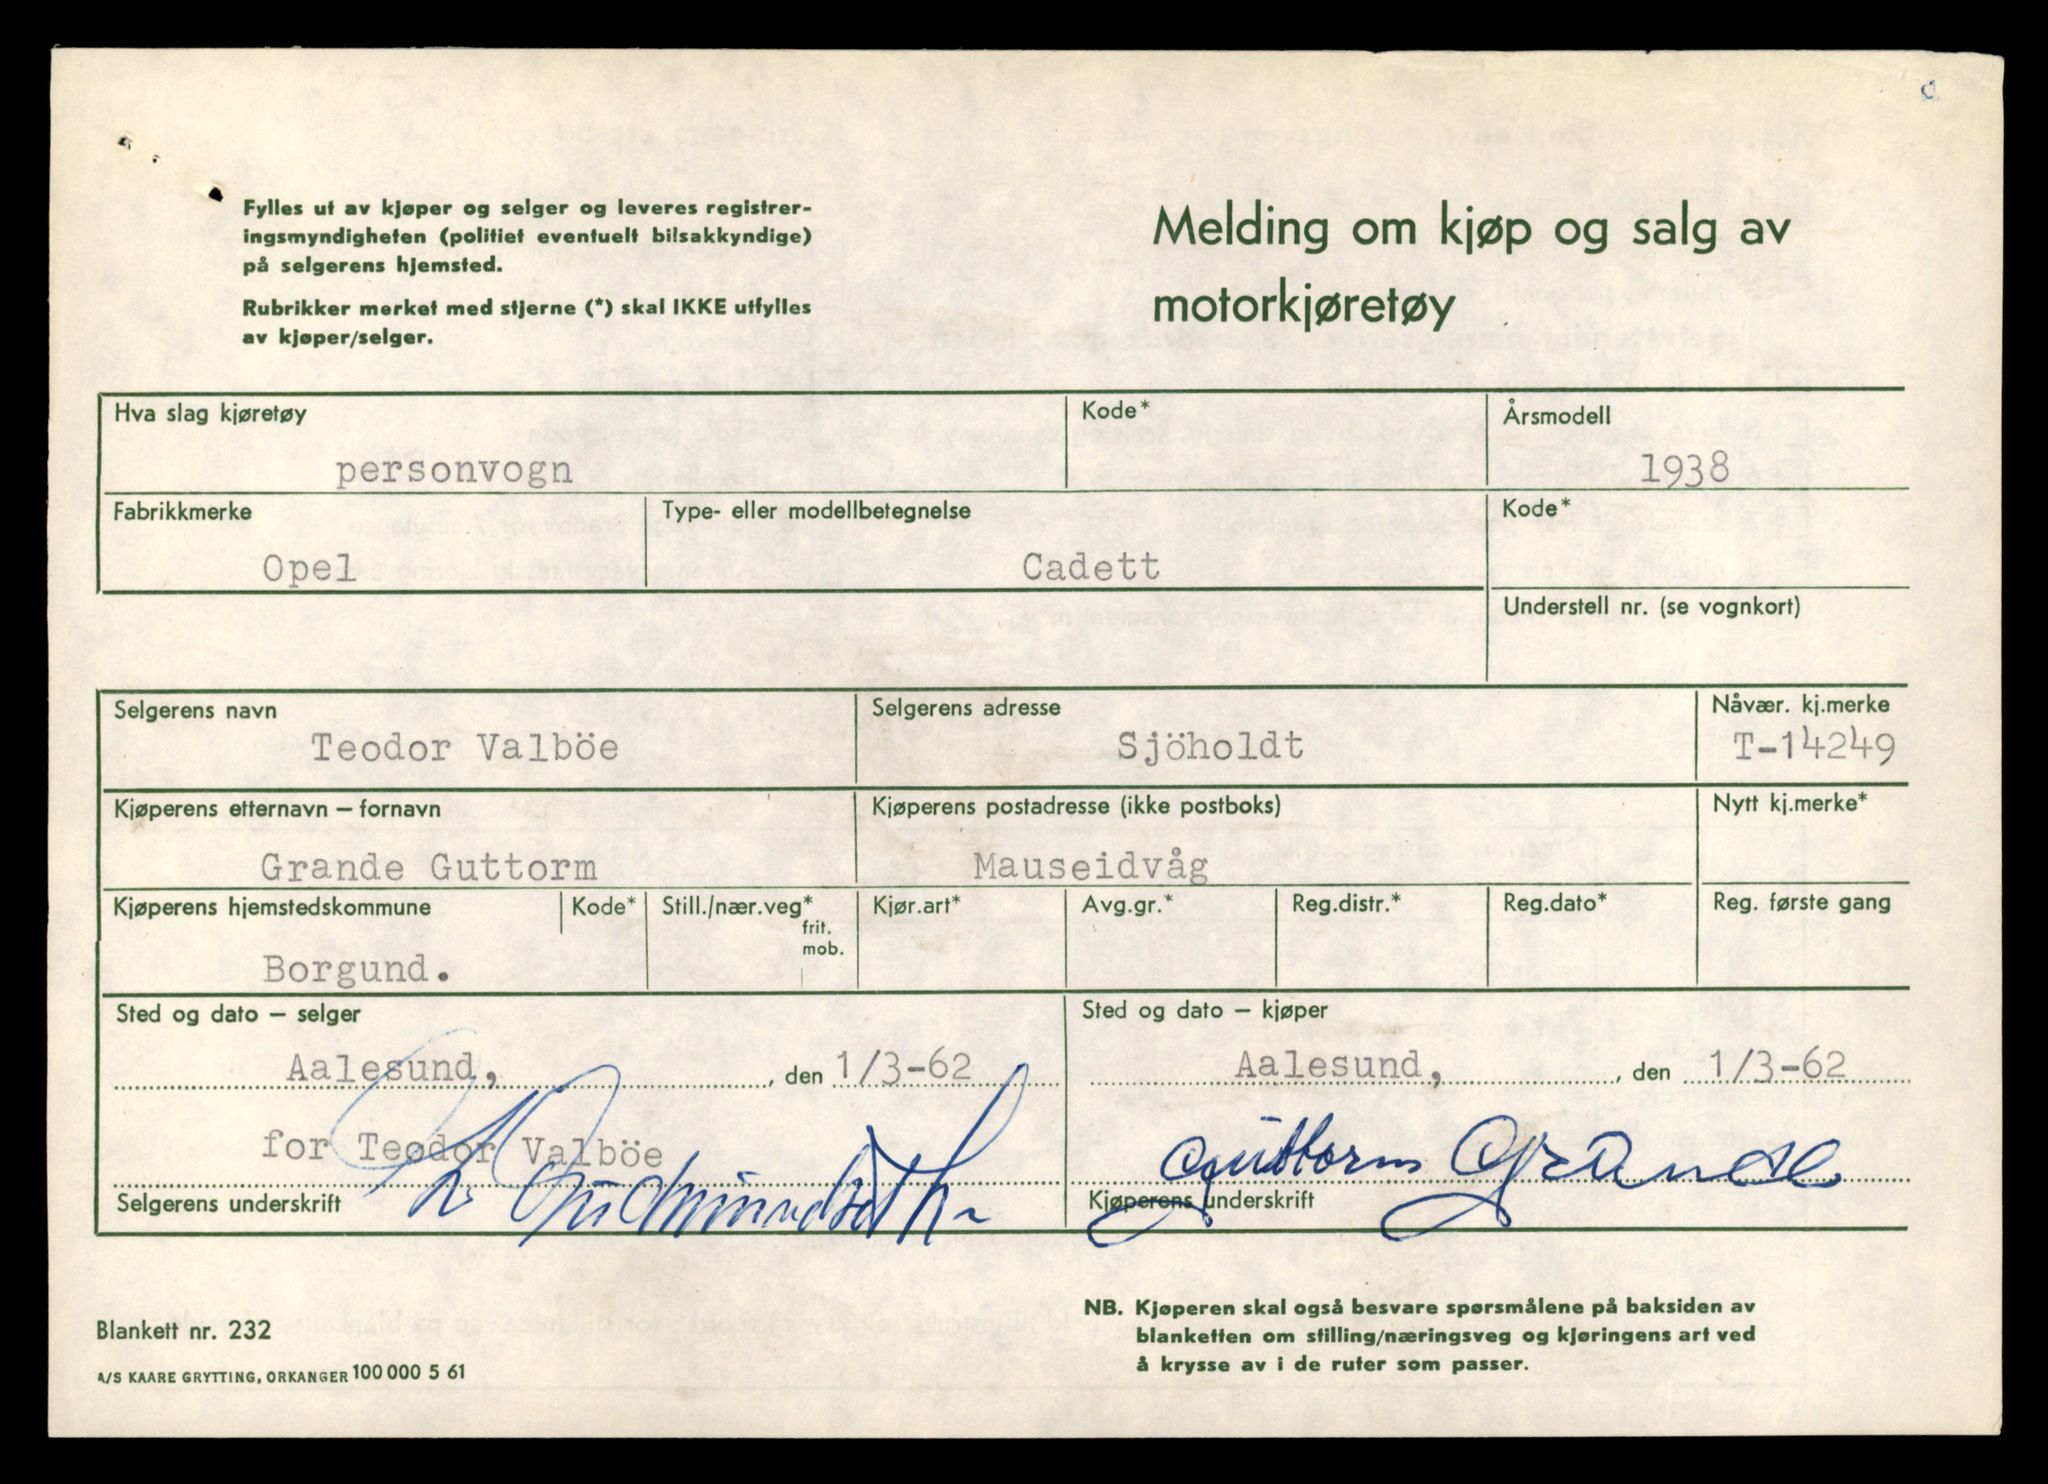 Fylles ut av kjøper og selger og leveres registrer-
ingsmyndigheten (politiet eventuelt bilsakkyndige)
på selgerens hjemsted.
Rubrikker merket med stjerne (*) skal IKKE utfylles
av kjøper/selger.
Melding om kjøp og salg av
motorkjøretøy
Hva slag kjøretøy
Kode*
Årsmodell
personvogn
1938
Fabrikkmerke
Type- eller modellbetegnelse
Kode*
Opel
Cadett
Understell nr. (se vognkort)
Selgerens navn
Selgerens adresse
Nåvær. kj.merke
Teodor Valböe
Sjöholdt
T-14249
Kjøperens etternavn – fornavn
Kjøperens postadresse (ikke postboks)
Nytt kj.merke*
Grande Guttorm
Mauseidvåg
Kjøperens hjemstedskommune
Kode*
Still./nær.veg*
frit.
mob.
Kjør.art*
Avg.gr.*
Reg.distr.*
Reg.dato*
Reg. første gang
Borgund.
Sted og dato – selger
Sted og dato – kjøper
Aalesund, den 1/3-62
Aalesund, den 1/3-62
for Teodor Valböe
Guttorm Grande
Selgerens underskrift
Kjøperens underskrift
Blankett nr. 232
A/S KAARE GRYTTING, ORKANGER 100 000 5 61
NB. Kjøperen skal også besvare spørsmålene på baksiden av
blanketten om stilling/næringsveg og kjøringens art ved
å krysse av i de ruter som passer.